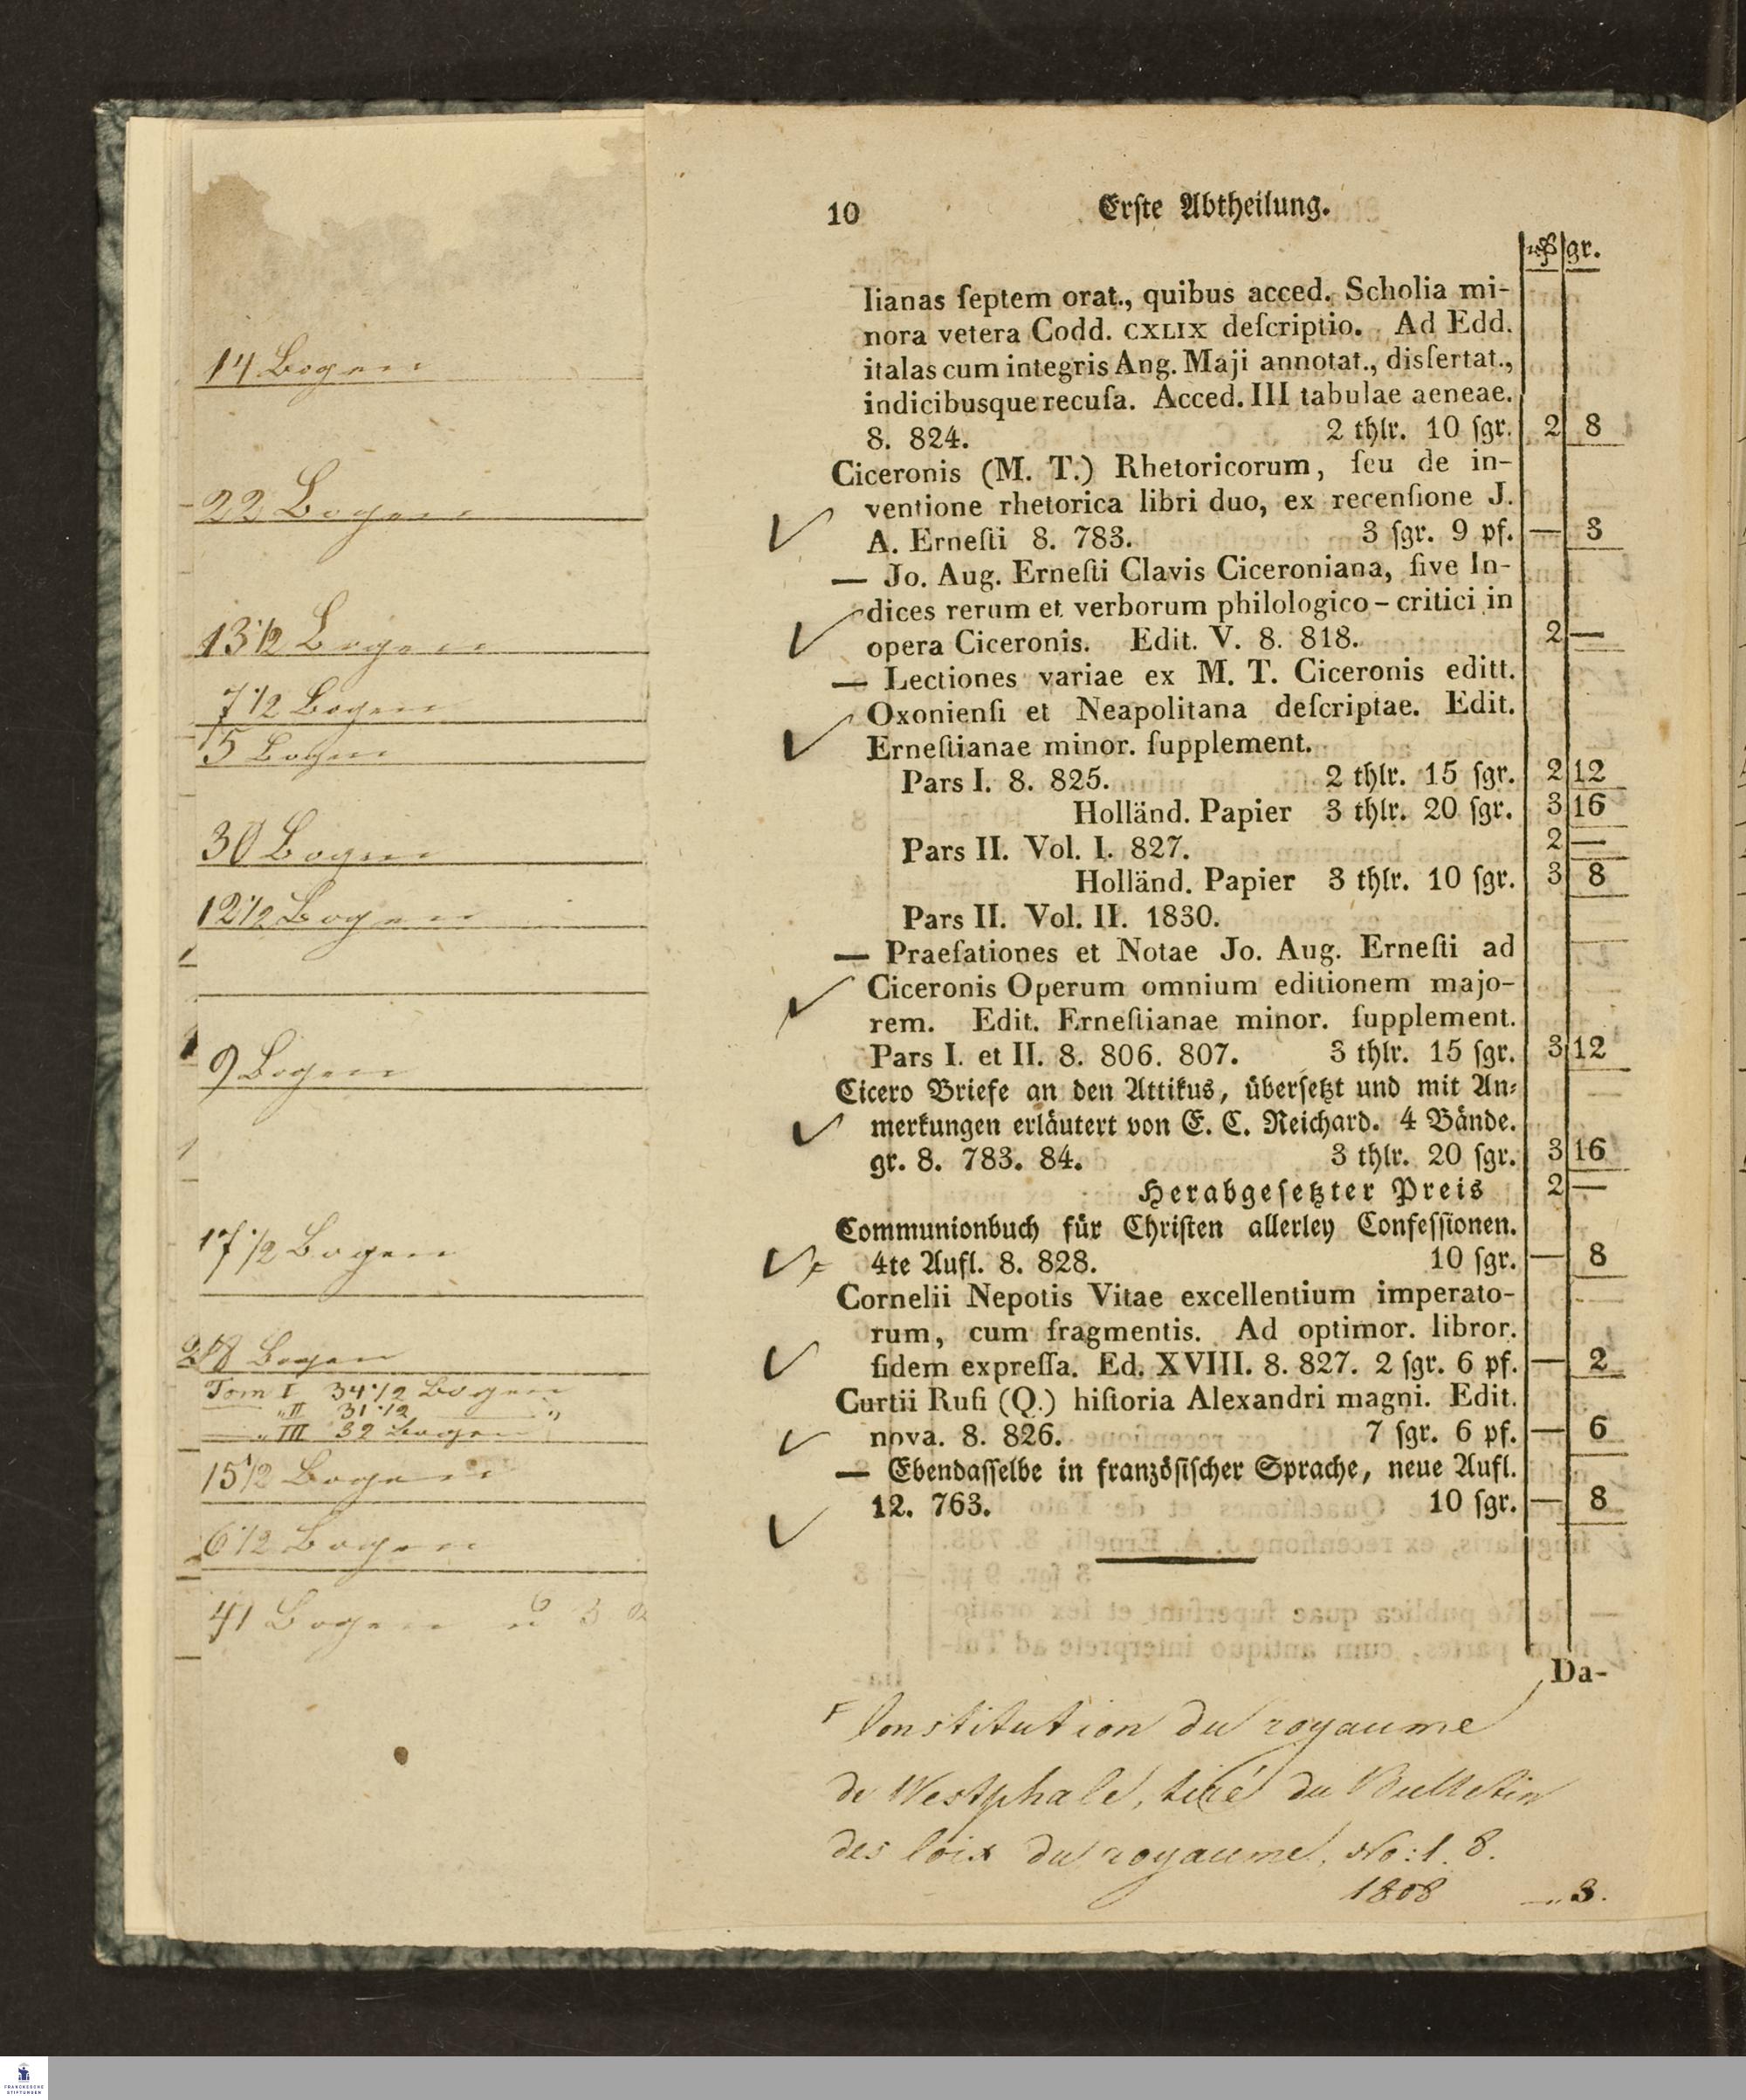 14 Bogen
22 Bogen
13 1/2 Bogen
7 1/2 Bogen
5 Bogen
30 Bogen
12 1/2 Bogen
9 Bogen
17 1/2 Bogen
Bogen
Tom I 34 1/2 Bogen
" II 31 1/2 "
" III 32 Bogen
15 1/2 Bogen
6 1/2 Bogen
41 Bogen
10 Erſte Abtheilung.
gr.
lianas ſeptem orat., quibus acced. Scholia mi-
nora vetera Codd. CXLIX deſcriptio. Ad Edd.
italas cum integris Ang. Maji annotat., disſertat.,
indicibusque recuſa. Acced. III tabulae aeneae.
8. 824. 2 thlr. 10 ſgr. 2 8
Ciceronis (M. T.) Rhetoricorum, ſeu de in-
ventione rhetorica libri duo, ex recenſione J.
A. Erneſti 8. 783. 3 ſgr. 9 pf. — 3
— Jo. Aug. Erneſti Clavis Ciceroniana, ſive In-
dices rerum et verborum philologico-critici in
opera Ciceronis. Edit. V. 8. 818. 2 —
— Lectiones variae ex M. T. Ciceronis editt.
Oxonienſi et Neapolitana deſcriptae. Edit.
Erneſtianae minor. ſupplement.
Pars I. 8. 825. 2 thlr. 15 ſgr. 2 12
Holländ. Papier 3 thlr. 20 ſgr. 3 16
Pars II. Vol. I. 827. 2 —
Holländ. Papier 3 thlr. 10 ſgr. 3 8
Pars II. Vol. II. 1830.
— Praefationes et Notae Jo. Aug. Erneſti ad
Ciceronis Operum omnium editionem majo-
rem. Edit. Erneſtianae minor. ſupplement.
Pars I. et II. 8. 806. 807. 3 thlr. 15 ſgr. 3 12
Cicero Briefe an den Attikus, überſetzt und mit An-
merkungen erläutert von E. C. Reichard. 4 Bände.
gr. 8. 783. 84. 3 thlr. 20 ſgr. 3 16
Herabgeſetzter Preis 2 —
Communionbuch für Chriſten allerley Confeſſionen.
4te Aufl. 8. 828. 10 ſgr. — 8
Cornelii Nepotis Vitae excellentium imperato-
rum, cum fragmentis. Ad optimor. libror.
fidem expreſſa. Ed. XVIII. 8. 827. 2 ſgr. 6 pf. — 2
Curtii Rufi (Q.) hiſtoria Alexandri magni. Edit.
nova. 8. 826. 7 ſgr. 6 pf. — 6
— Ebendaſſelbe in franzöſiſcher Sprache, neue Aufl.
12. 763. 10 ſgr. — 8
Da-
Constitution du royaume
de Westphale, tiré du Bulletin
des loix du royaume, No: 1. 8.
1808 — „ 3.
FRANCKESCHE
STIFTUNGEN